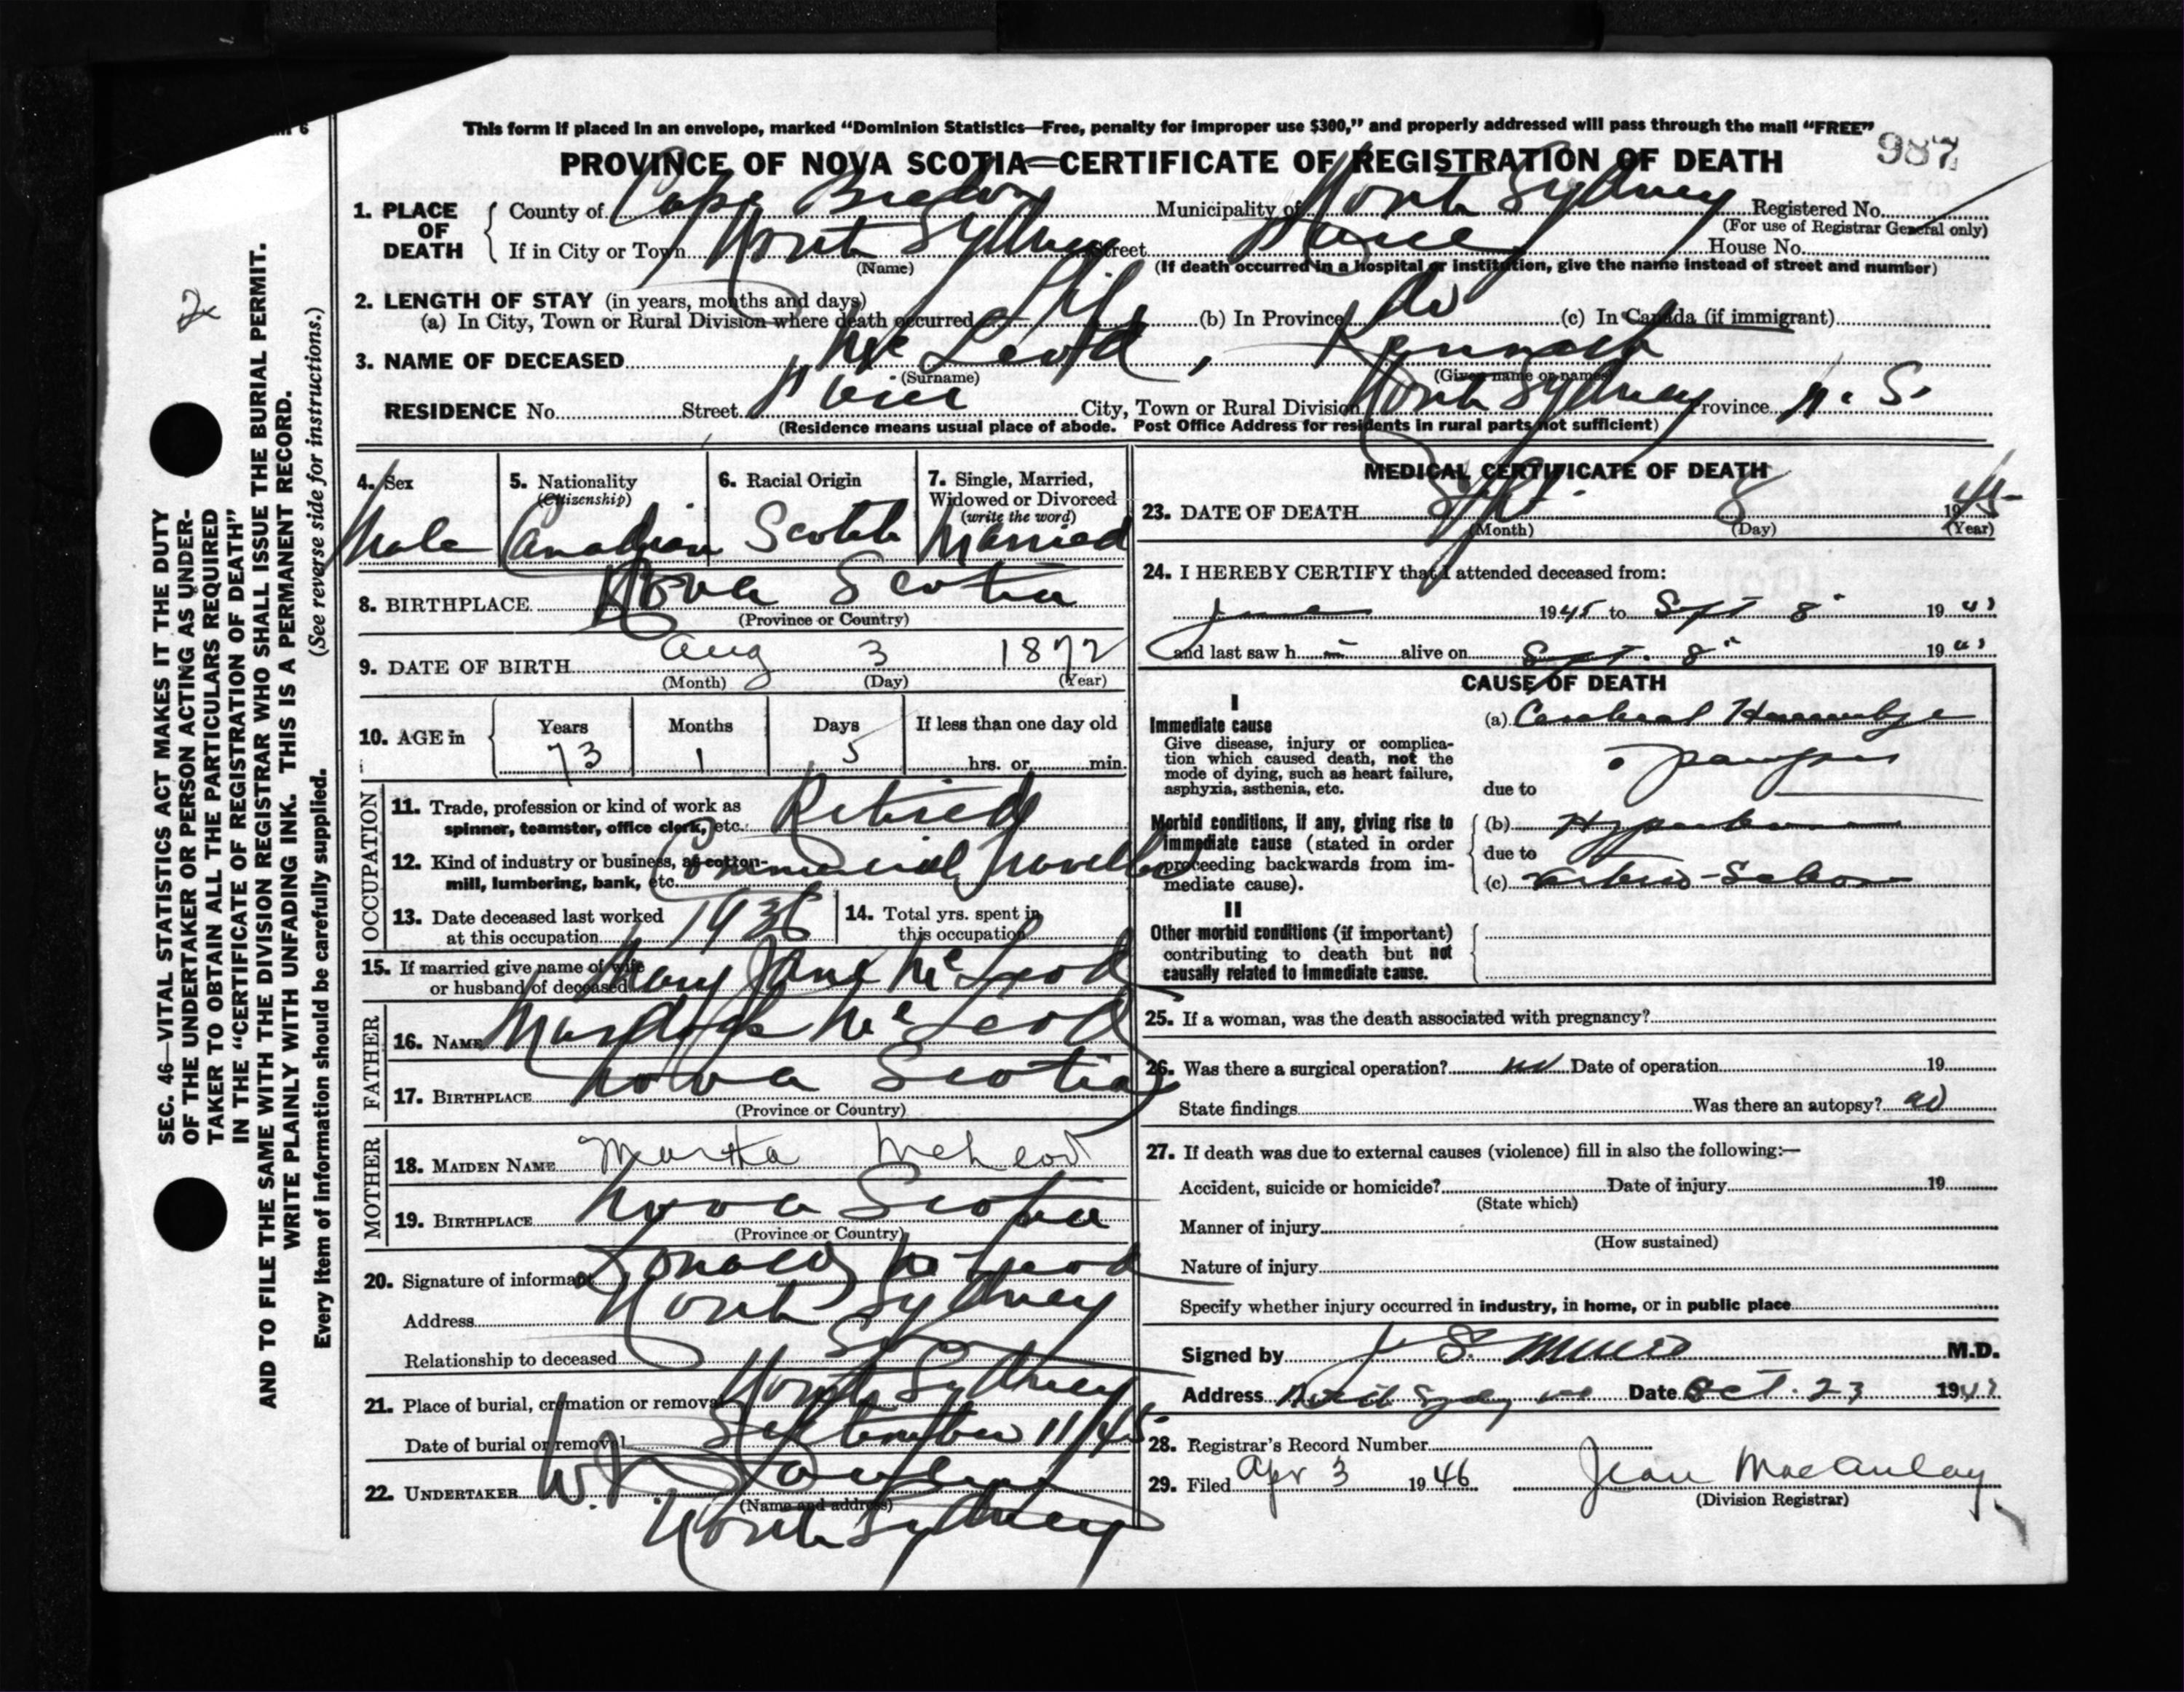 This form if placed in an envelope, marked “Dominion Statistics—Free, penalty for improper use $300,” and properly addressed will pass through the mail “FREE”
PROVINCE OF NOVA SCOTIA—CERTIFICATE OF REGISTRATION OF DEATH 987
1. PLACE OF DEATH County of Cape Breton Municipality of North Sydney Registered No.
(For use of Registrar General only)
If in City or Town North Sydney Street House No.
(Name) (If death occurred in a hospital or institution, give the name instead of street and number)
2. LENGTH OF STAY (in years, months and days)
(a) In City, Town or Rural Division where death occurred Life (b) In Province do (c) In Canada (if immigrant)
3. NAME OF DECEASED McLeod, Kenneth
(Surname) (Given name or names)
RESIDENCE No. Street City, Town or Rural Division North Sydney Province N. S.
(Residence means usual place of abode. Post Office Address for residents in rural parts not sufficient)
4. Sex Male
5. Nationality (Citizenship) Canadian
6. Racial Origin Scotch
7. Single, Married, Widowed or Divorced (write the word) Married
8. BIRTHPLACE Nova Scotia
(Province or Country)
9. DATE OF BIRTH Aug 3 1872
(Month) (Day) (Year)
10. AGE in Years 73 Months 1 Days 5 If less than one day old hrs. or min.
OCCUPATION
11. Trade, profession or kind of work as spinner, teamster, office clerk, etc. Retired
12. Kind of industry or business, as cotton-mill, lumbering, bank, etc. Commercial Traveller
13. Date deceased last worked at this occupation 1936
14. Total yrs. spent in this occupation
15. If married give name of wife or husband of deceased Mary Jane McLeod
FATHER
16. NAME Murdock McLeod
17. BIRTHPLACE Nova Scotia
(Province or Country)
MOTHER
18. MAIDEN NAME Martha McLeod
19. BIRTHPLACE Nova Scotia
(Province or Country)
20. Signature of informant Donald McLeod
Address North Sydney
Relationship to deceased Son
21. Place of burial, cremation or removal North Sydney
Date of burial or removal September 11/45
22. UNDERTAKER W.
(Name and address)
North Sydney
MEDICAL CERTIFICATE OF DEATH
23. DATE OF DEATH Sept. 8 1945
(Month) (Day) (Year)
24. I HEREBY CERTIFY that I attended deceased from:
June 1945 to Sept 8 19
and last saw h im alive on Sept. 8 19
CAUSE OF DEATH
I
Immediate cause
Give disease, injury or complication which caused death, not the mode of dying, such as heart failure, asphyxia, asthenia, etc.
(a) Cerebral Hemorrhage
due to
Morbid conditions, if any, giving rise to immediate cause (stated in order proceeding backwards from immediate cause).
(b)
due to
(c)
II
Other morbid conditions (if important) contributing to death but not causally related to immediate cause.
25. If a woman, was the death associated with pregnancy?
26. Was there a surgical operation? no Date of operation 19
State findings Was there an autopsy? no
27. If death was due to external causes (violence) fill in also the following:—
Accident, suicide or homicide? Date of injury 19
(State which)
Manner of injury
(How sustained)
Nature of injury
Specify whether injury occurred in industry, in home, or in public place
Signed by J S. Munro M.D.
Address North Sydney NS Date Oct. 23 19
28. Registrar's Record Number
29. Filed Apr 3 1946 Jean MacAulay
(Division Registrar)
SEC. 46—VITAL STATISTICS ACT MAKES IT THE DUTY
OF THE UNDERTAKER OR PERSON ACTING AS UNDER-
TAKER TO OBTAIN ALL THE PARTICULARS REQUIRED
IN THE “CERTIFICATE OF REGISTRATION OF DEATH”
AND TO FILE THE SAME WITH THE DIVISION REGISTRAR WHO SHALL ISSUE THE BURIAL PERMIT.
WRITE PLAINLY WITH UNFADING INK. THIS IS A PERMANENT RECORD.
Every item of information should be carefully supplied. (See reverse side for instructions.)